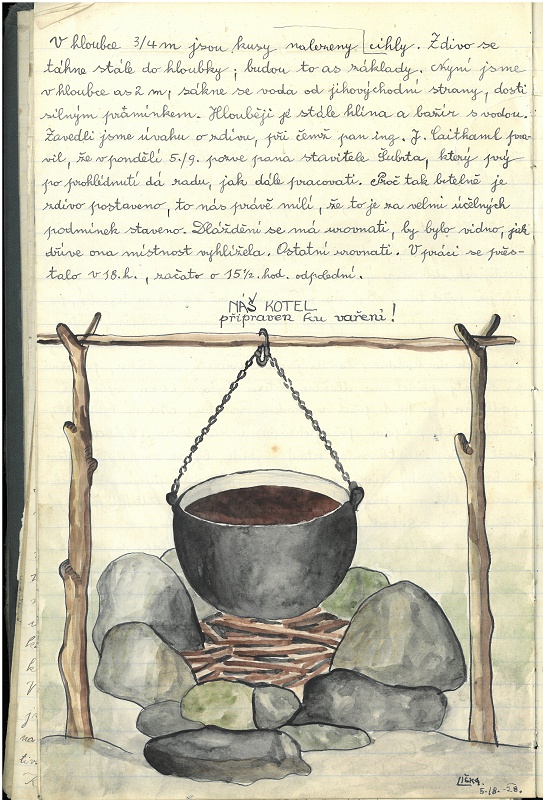 V hloubce 3/4 m jsou kusy nalezeny cihly. Zdivo se
táhne stále do hloubky; budou to as základy. Nyní jsme
v hloubce as 2 m, sákne se voda od jihovýchodní strany, dosti
silným pramínkem. Hlouběji je stále hlína a bažir s vodou.
Zavedli jsme úvahu o zdivu, při čemž pan ing. J. pra-
vil, že v pondělí 5./9. pozve pana stavitele který prý
po prohlídnutí dá radu, jak dále pracovati. Proč tak bitelně je
zdivo postaveno, to nás právě mílí, že to je za velmi účelných
podmínek staveno. Dláždění se má urovnati, by bylo vidno, jak
dříve ona místnost vyhlížela. Ostatní urovnati. V práci se přes-
talo v 18. h., začato o 15½. hod. odpolední.
NAŠ KOTEL
připraven ku vaření!
Lička.
5./8.-28.